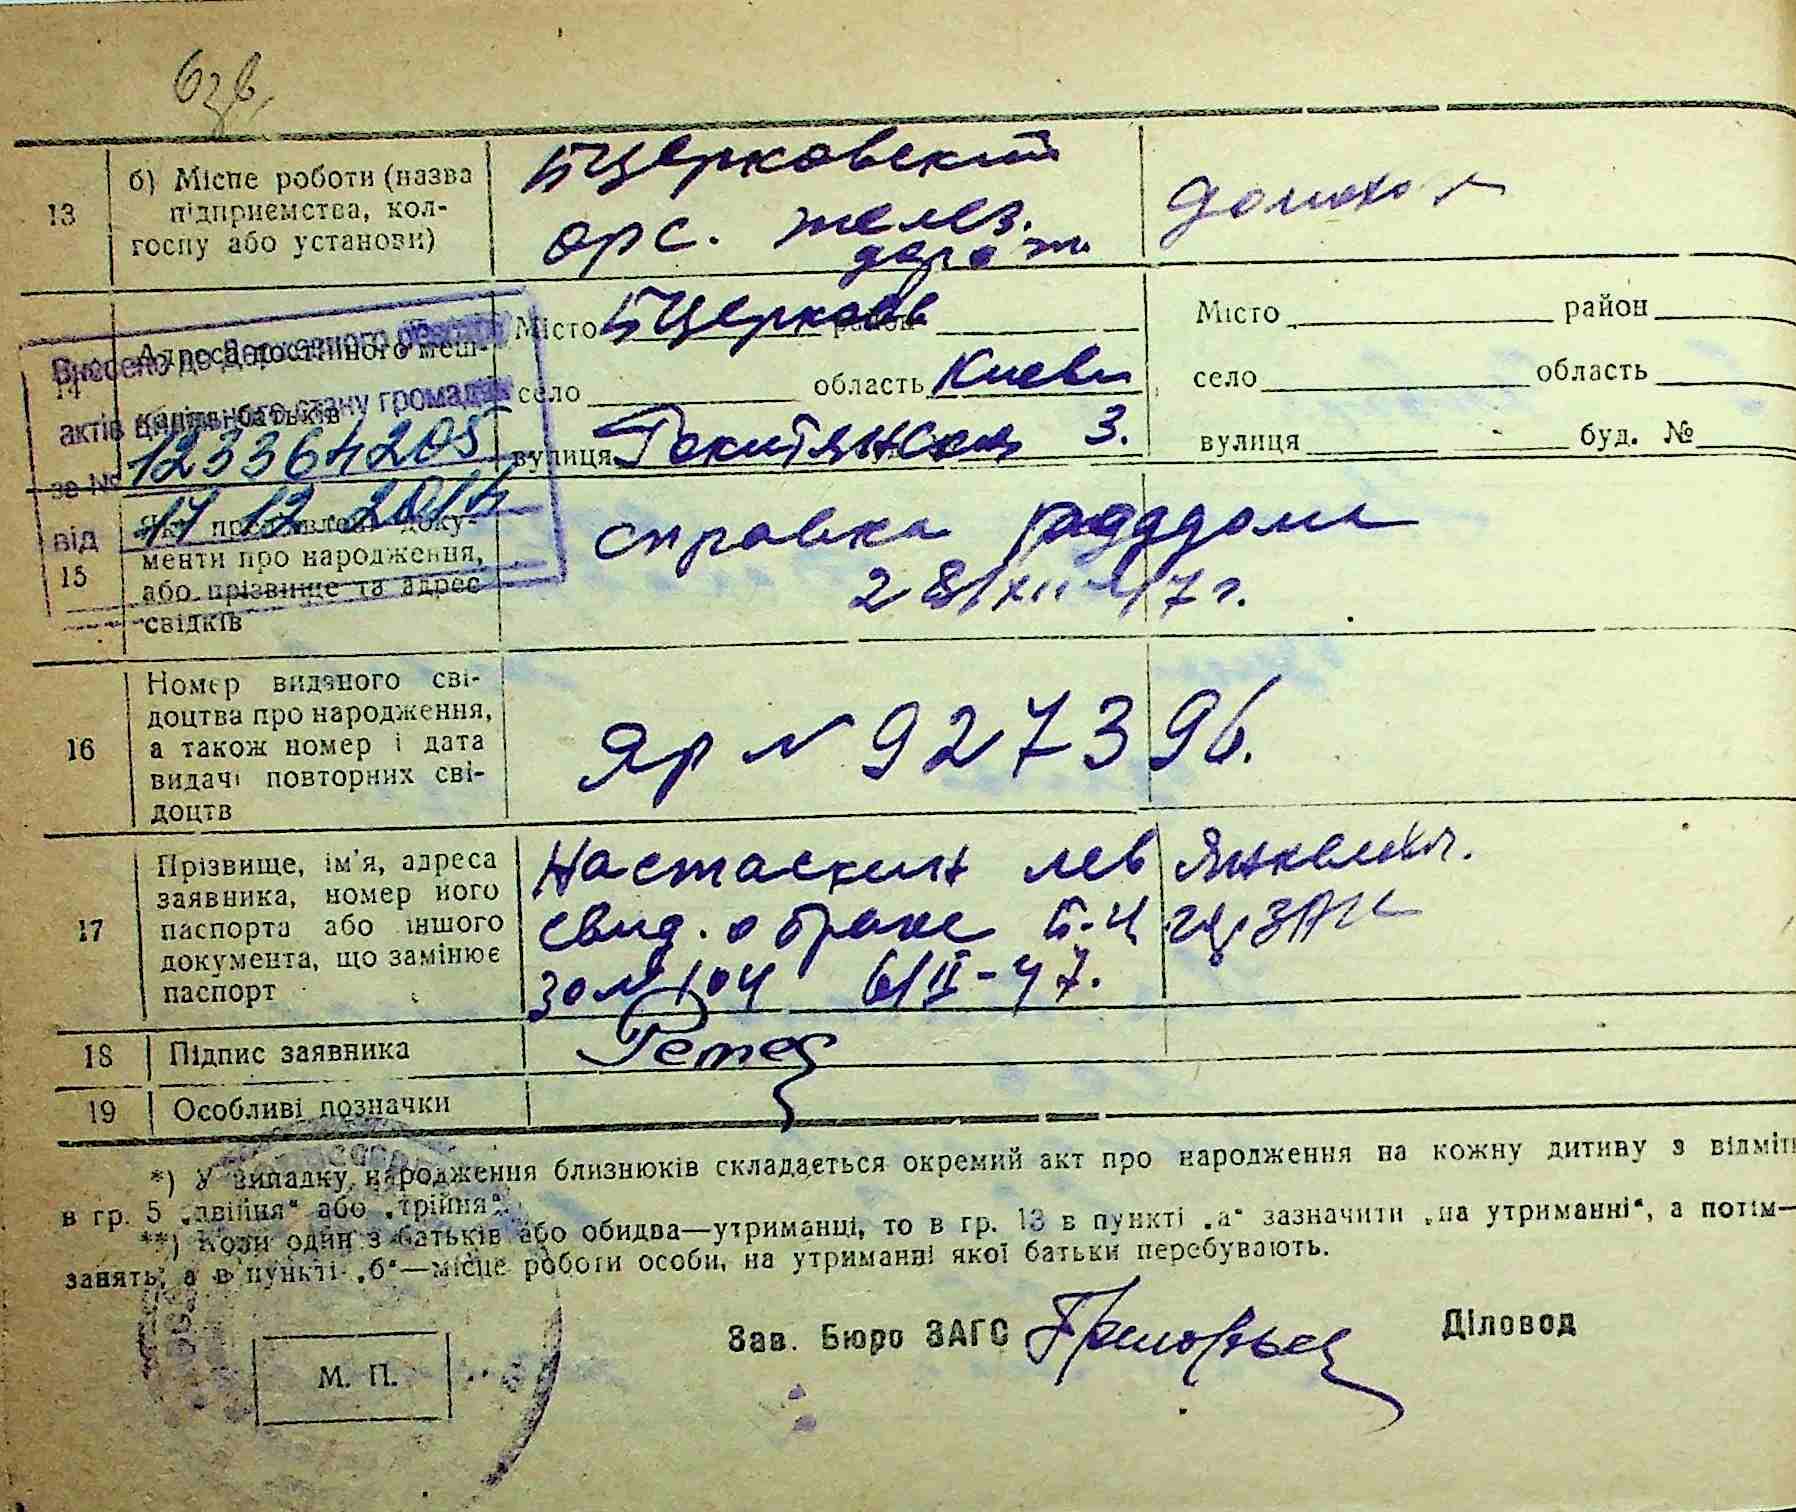 13
б) Місце роботи (назва
підприємства, кол-
госпу або установи)
БЦерковский
орс. желез.
дорож.
домохоз
14
Адреса постійного меш-
кання батьків
Місто БЦерковь район
село область Киевс
вулиця Рокитянская 3.
Місто район
село область
вулиця буд. №
Внесено до Державного реєстру
актів цивільного стану громадян
за № 123364205
від 17 12 2014
15
Які пред'явлені доку-
менти про народження,
або прізвище та адрес
свідків
справка роддома
28/XII-47 г.
16
Номер виданого сві-
доцтва про народження,
а також номер і дата
видачі повторних сві-
доцтв
ЯР № 927396.
17
Прізвище, ім'я, адреса
заявника, номер його
паспорта або іншого
документа, що замінює
паспорт
Настаскин Лев
свид. о браке Б-Ц ЗАГС
за № 104 6/II-47.
18
Підпис заявника
19
Особливі позначки
*) У випадку народження близнюків складається окремий акт про народження на кожну дитину з відміт
в гр. 5 „двійня“ або „трійня“.
**) Коли один з батьків або обидва—утриманці, то в гр. 13 в пункті „а“ зазначити „на утриманні“, а потім—
занять, а в пункті „б“—місце роботи особи, на утриманні якої батьки перебувають.
Зав. Бюро ЗАГС
Діловод
М. П.